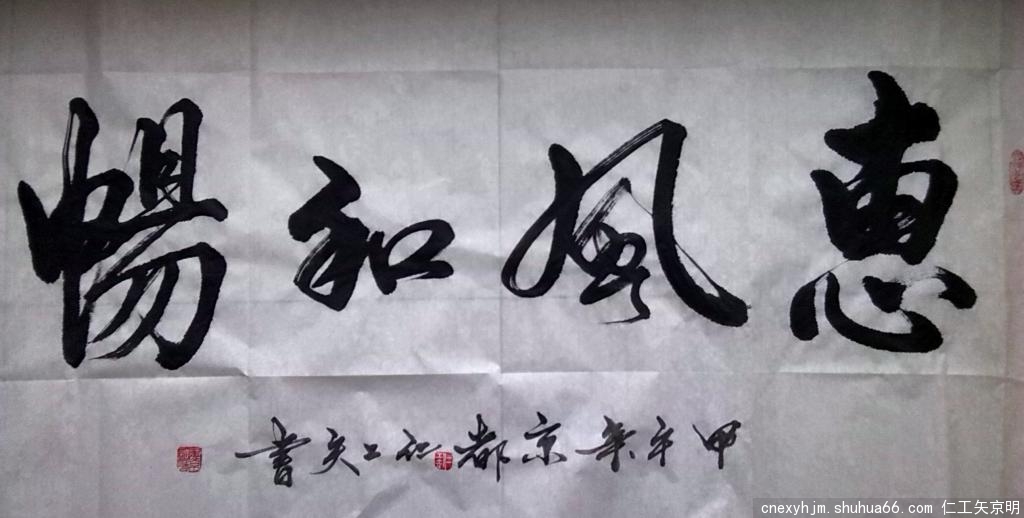 惠風和暢
甲午京都仁工矢書
cnexyhjm.shuhua66.com 仁工矢京明